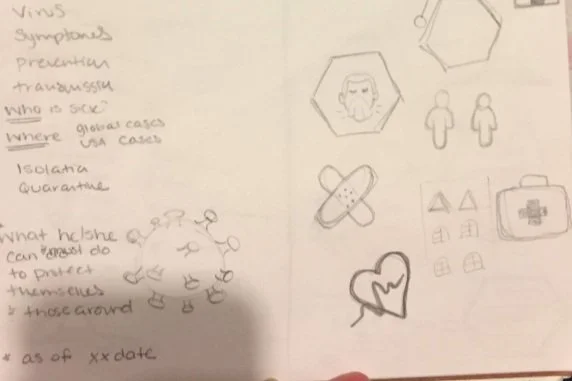 Virus
Symptoms
prevention
transmission
Who is sick?
Where global cases
USA cases
Isolation
Quarantine
What he/she
can must do
to protect
themselves
& those around
* as of xx date